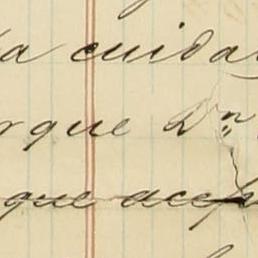 a cuida
rque Dn
que acep